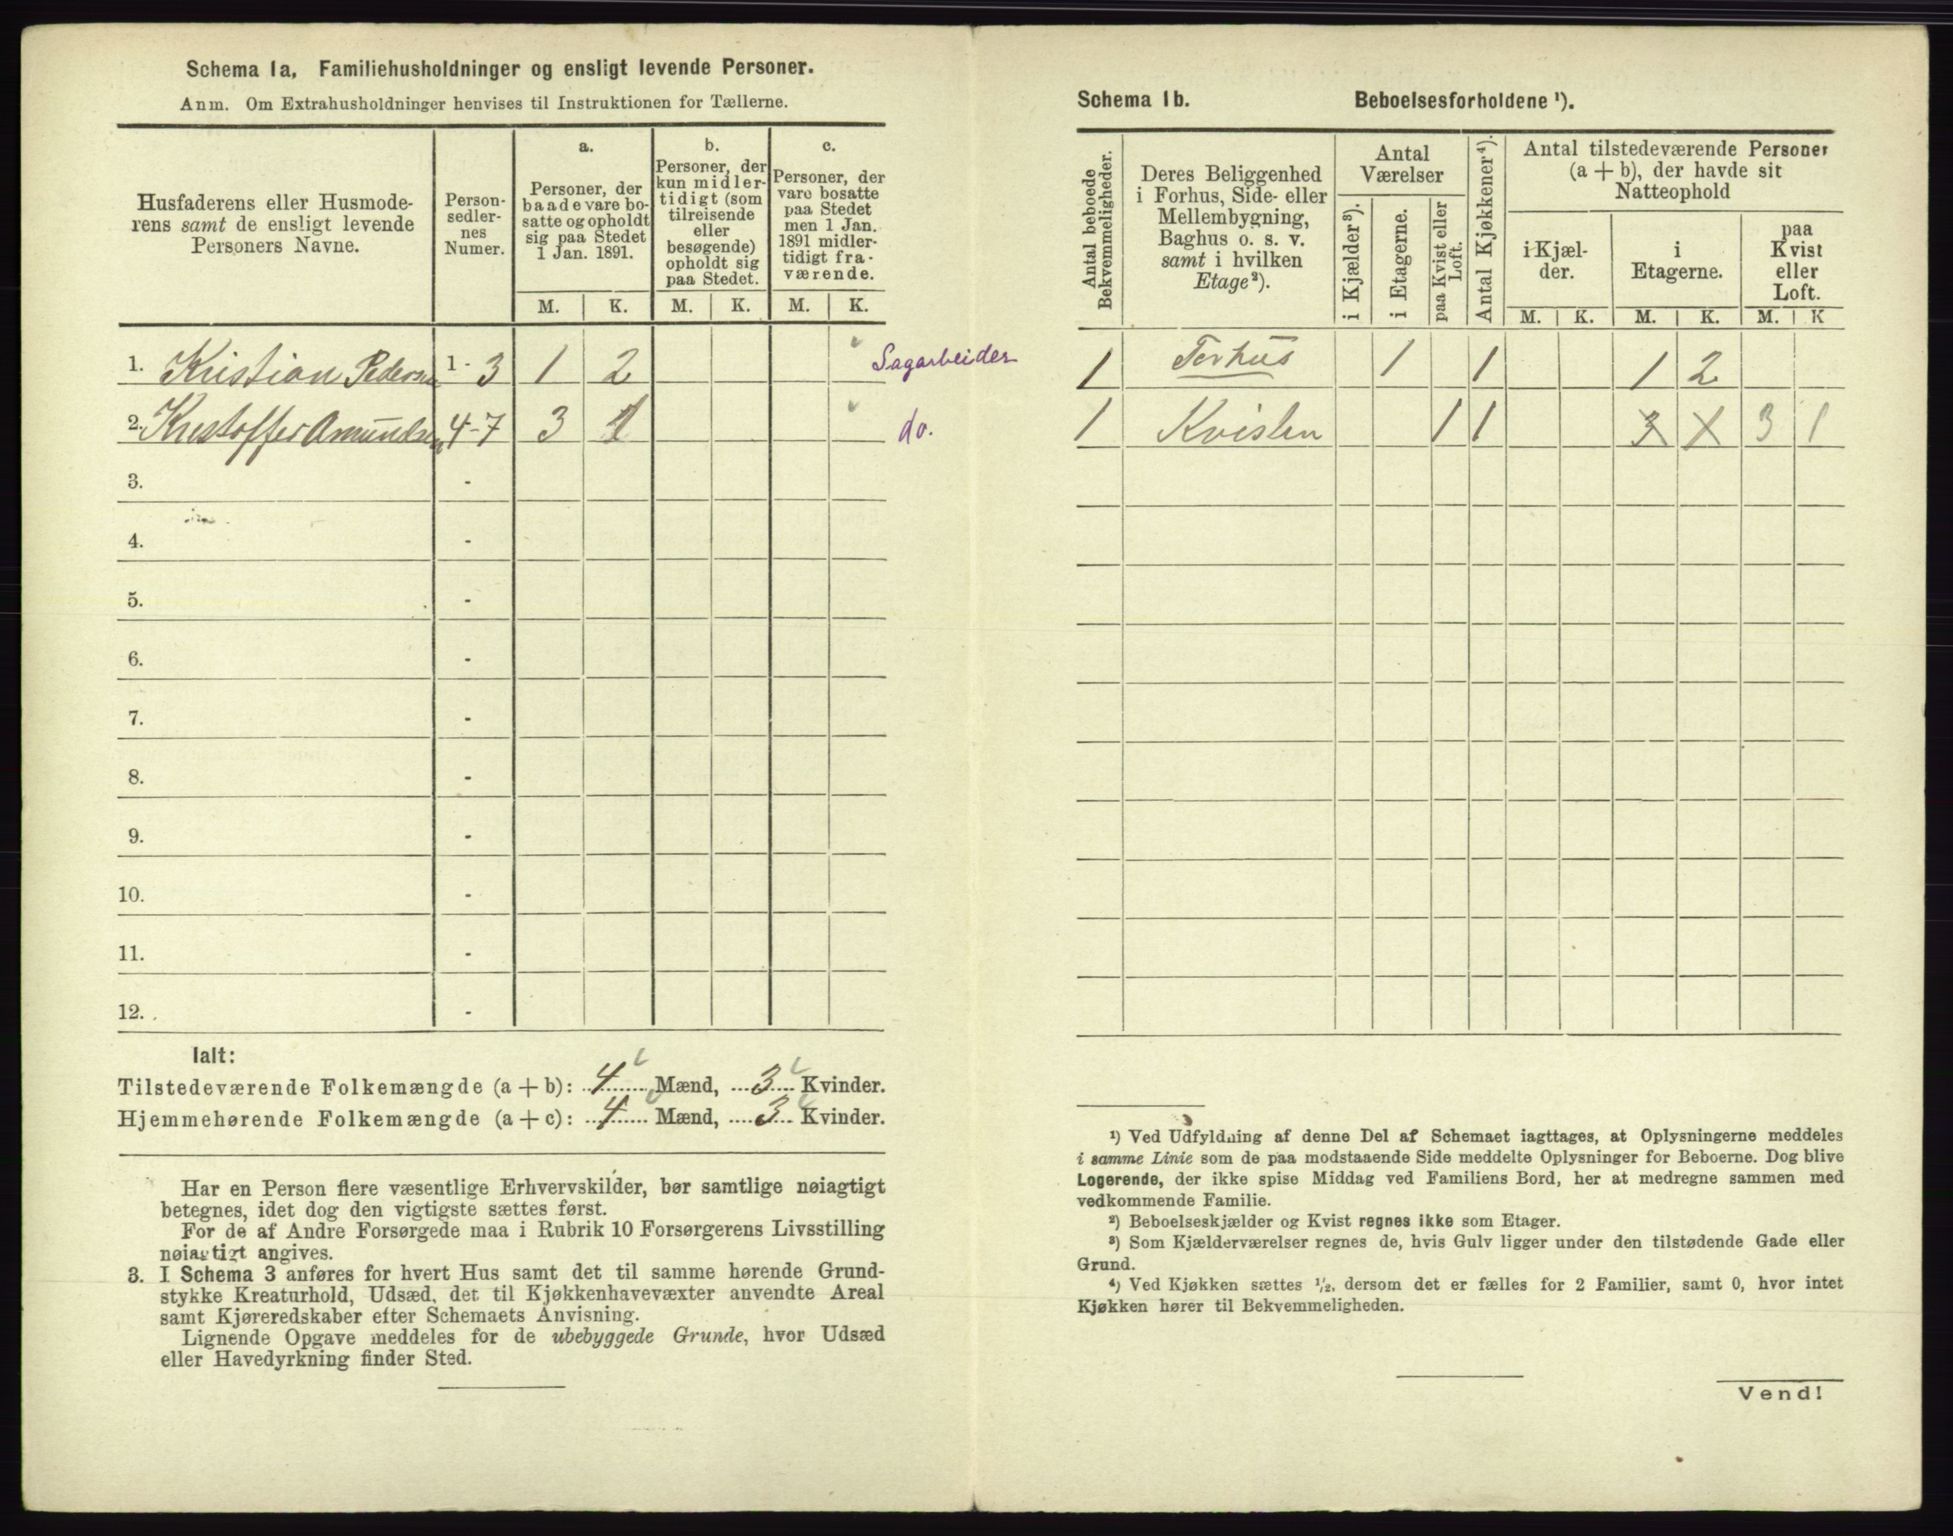 Schema 1a, Familiehusholdninger og ensligt levende Personer.
Anm. Om Extrahusholdninger henvises til Instruktionen for Tællerne.
Husfaderens eller Husmode-
rens samt de ensligt levende
Personers Navne.
Person-
sedler-
nes
Numer.
a.
Personer, der
baade vare bo-
satte og opholdt
sig paa Stedet
1 Jan. 1891.
b.
Personer, der
kun midler-
tidigt (som
tilreisende
eller
besøgende)
opholdt sig
paa Stedet.
c.
Personer, der
vare bosatte
paa Stedet
men 1 Jan.
1891 midler-
tidigt fra-
værende.
M. K. M. K. M. K.
1. Kristian Pedersen 1 - 3 1 2 Sagarbeider
2. Kristoffer Amundsen 4 - 7 3 1 do.
3. -
4. -
5. -
6. -
7. -
8. -
9. -
10. -
11. -
12. -
Ialt:
Tilstedeværende Folkemængde (a + b): 4 Mænd, 3 Kvinder.
Hjemmehørende Folkemængde (a + c): 4 Mænd, 3 Kvinder.
Har en Person flere væsentlige Erhvervskilder, bør samtlige nøiagtigt
betegnes, idet dog den vigtigste sættes først.
For de af Andre Forsørgede maa i Rubrik 10 Forsørgerens Livsstilling
nøiagtigt angives.
3. I Schema 3 anføres for hvert Hus samt det til samme hørende Grund-
stykke Kreaturhold, Udsæd, det til Kjøkkenhavevæxter anvendte Areal
samt Kjøreredskaber efter Schemaets Anvisning.
Lignende Opgave meddeles for de ubebyggede Grunde, hvor Udsæd
eller Havedyrkning finder Sted.
Schema 1b. Beboelsesforholdene ¹).
Antal beboede
Bekvemmeligheder.
Deres Beliggenhed
i Forhus, Side- eller
Mellembygning,
Baghus o. s. v.
samt i hvilken
Etage²).
Antal
Værelser
i Kjælder³).
i Etagerne.
paa Kvist eller
Loft.
Antal Kjøkkener⁴).
Antal tilstedeværende Personer
(a + b), der havde sit
Natteophold
i Kjæl-
der.
i
Etagerne.
paa
Kvist
eller
Loft.
M. K. M. K. M. K
1 Forhus 1 1 1 2
1 Kvisten 1 1 3 1 3 1
¹) Ved Udfyldning af denne Del af Schemaet iagttages, at Oplysningerne meddeles
i samme Linie som de paa modstaaende Side meddelte Oplysninger for Beboerne. Dog blive
Logerende, der ikke spise Middag ved Familiens Bord, her at medregne sammen med
vedkommende Familie.
²) Beboelseskjælder og Kvist regnes ikke som Etager.
³) Som Kjælderværelser regnes de, hvis Gulv ligger under den tilstødende Gade eller
Grund.
⁴) Ved Kjøkken sættes ¹/₂, dersom det er fælles for 2 Familier, samt 0, hvor intet
Kjøkken hører til Bekvemmeligheden.
Vend!